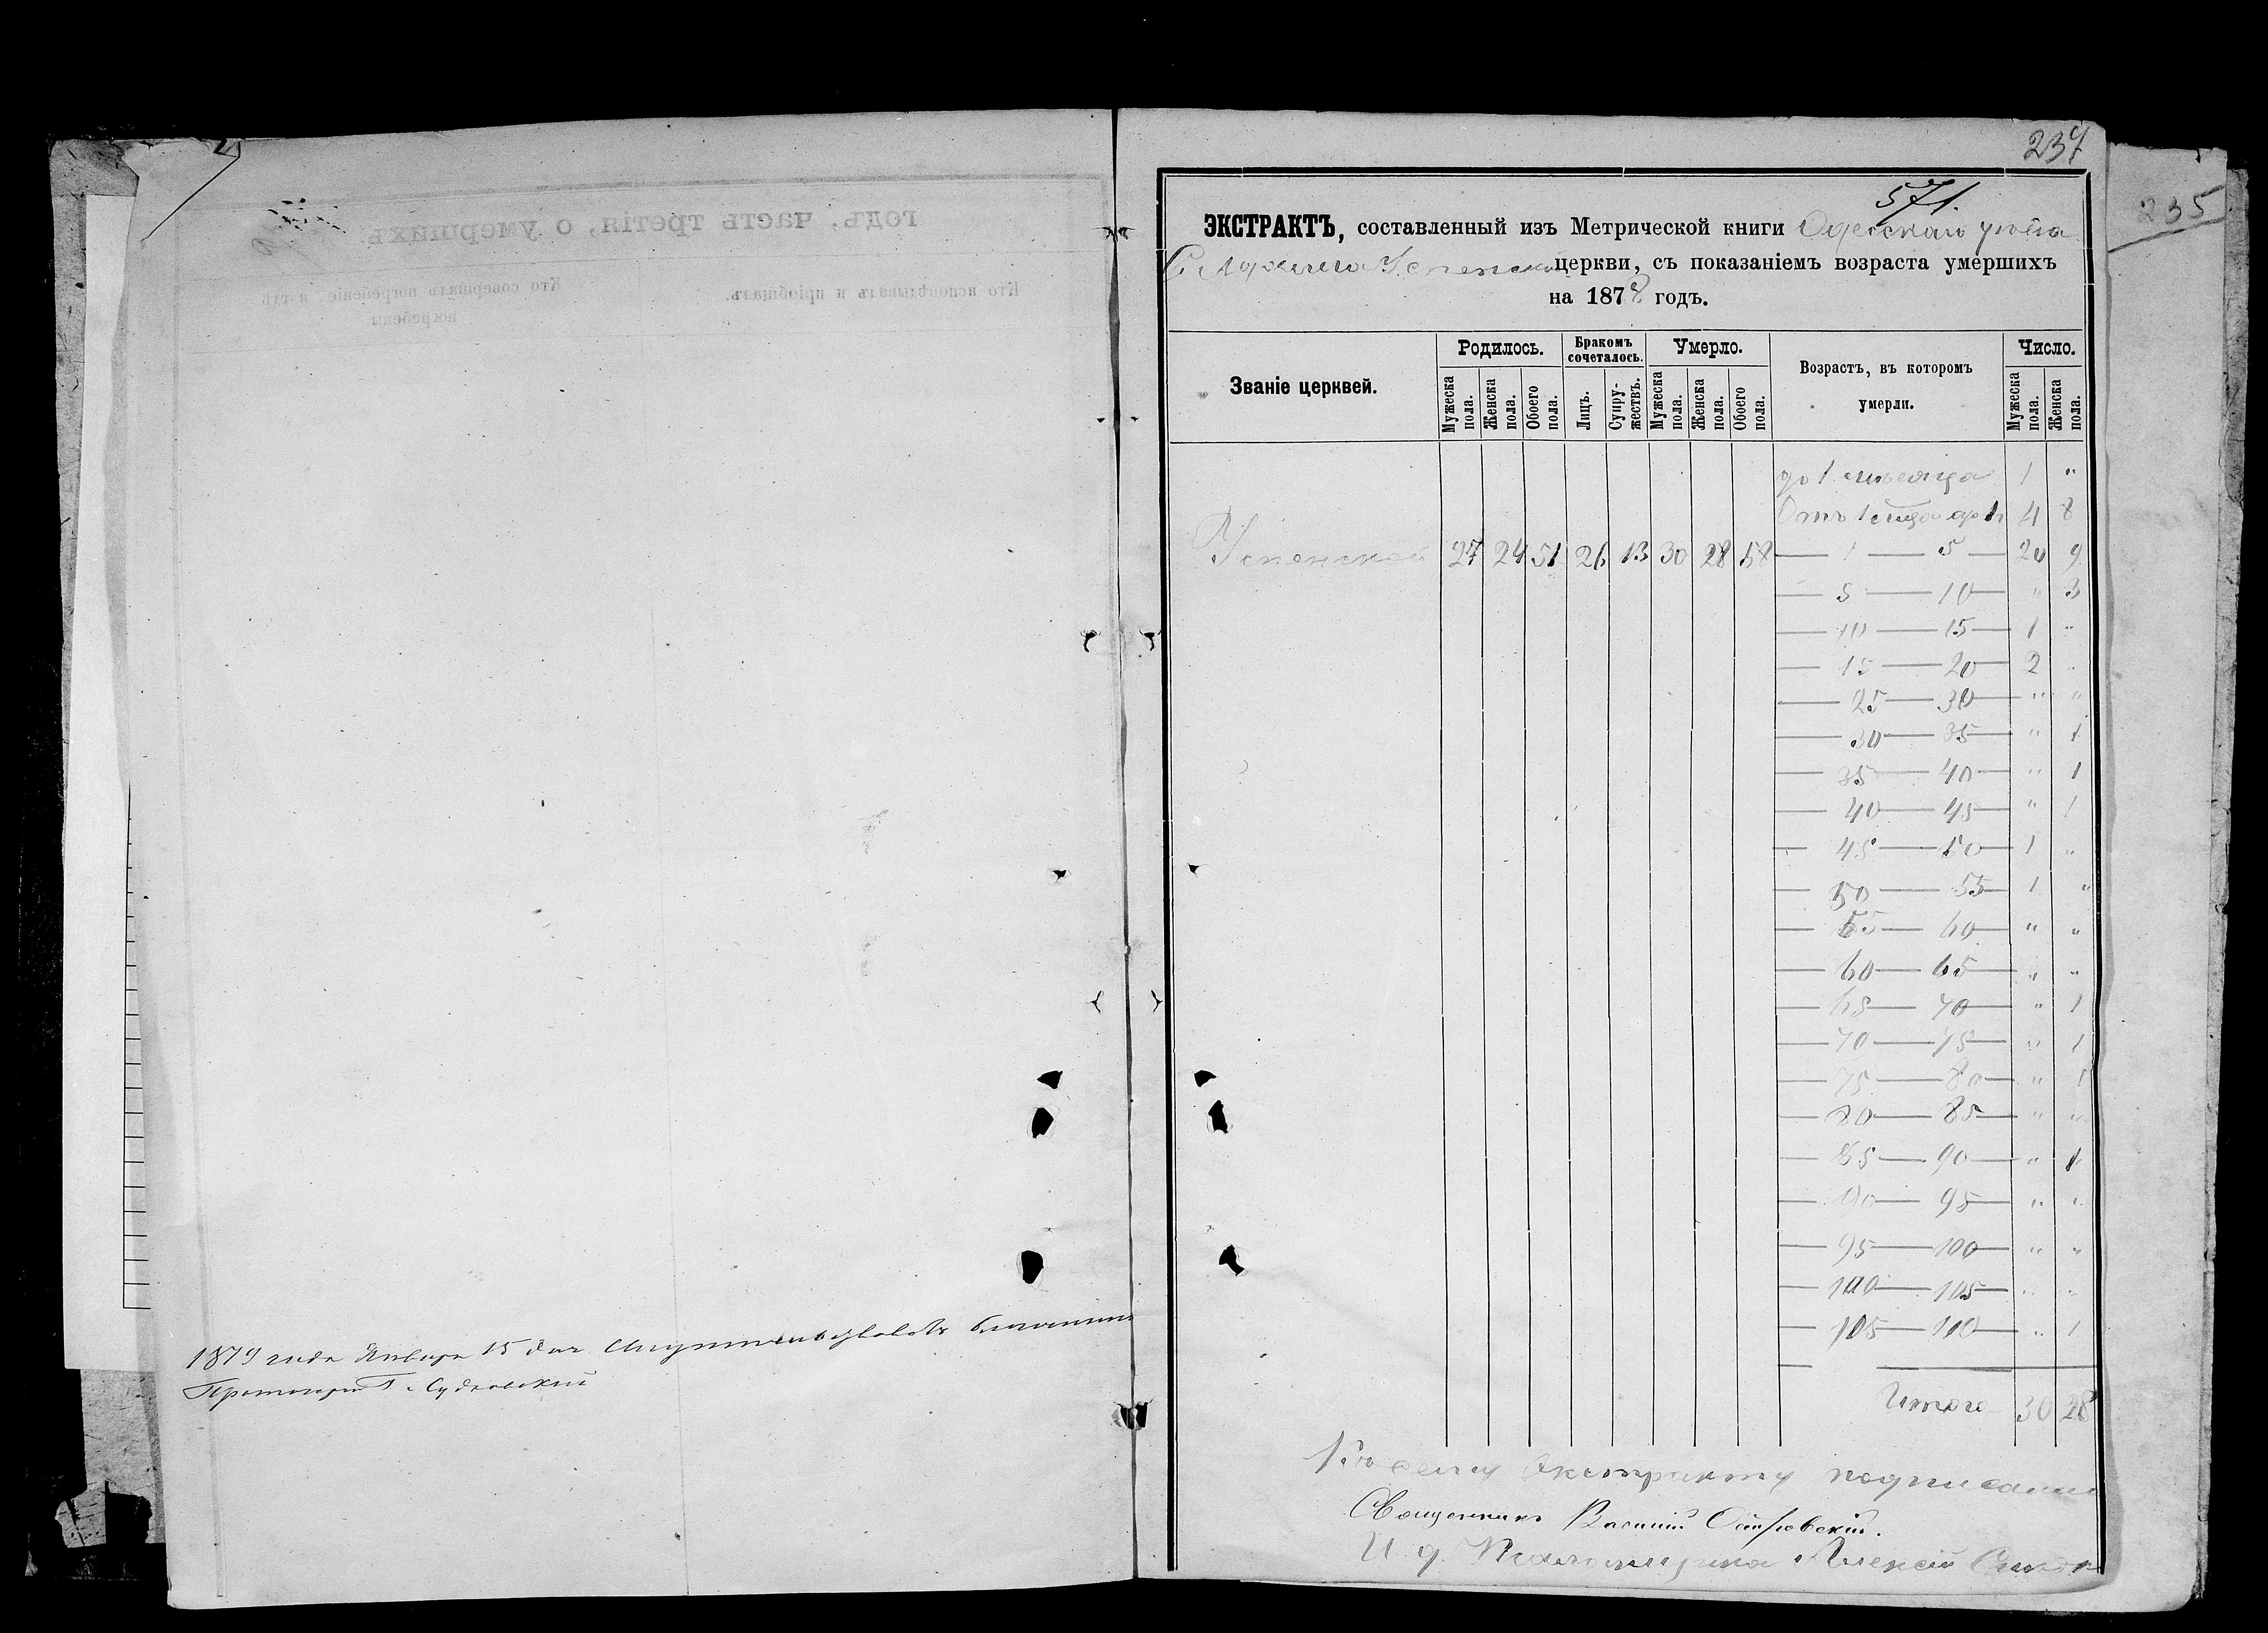 1879 года Января 15 дня
Протоіерей Г. Судковскій
234
235
571.
ЭКСТРАКТЪ, составленный изъ Метрической книги Одесскаго уѣзда
С. Аджіяска Успенской церкви, съ показаніемъ возраста умершихъ
на 1878 годъ.
Званіе церквей.
Родилось.
Мужеска пола.
Женска пола.
Обоего пола.
Бракомъ сочеталось.
Лицъ.
Супружествъ.
Умерло.
Мужеска пола.
Женска пола.
Обоего пола.
Возрастъ, въ которомъ умерли.
Число.
Мужеска пола.
Женска пола.
до 1 мѣсяца 1 "
Отъ 1 до 1 4 8
Успенской 27 24 51 26 13 30 28 58 — 1 — 5 — 20 9
— 5 — 10 — " 3
— 10 — 15 — 1 "
— 15 — 20 — 2 "
— 25 — 30 — " "
— 30 — 35 — " 1
— 35 — 40 — " 1
— 40 — 45 — " 1
— 45 — 50 — 1 "
— 50 — 55 — 1 "
— 55 — 60 — " "
— 60 — 65 — " "
— 65 — 70 — " 1
— 70 — 75 — " 1
— 75 — 80 — " 1
— 80 — 85 — " "
— 85 — 90 — " 1
— 90 — 95 — " "
— 95 — 100 — " "
— 100 — 105 — " "
— 105 — 110 — " 1
Итого 30 28
Къ сему экстракту подписались
Священникъ Василій Островскій.
И. д. Псаломщика Алексій